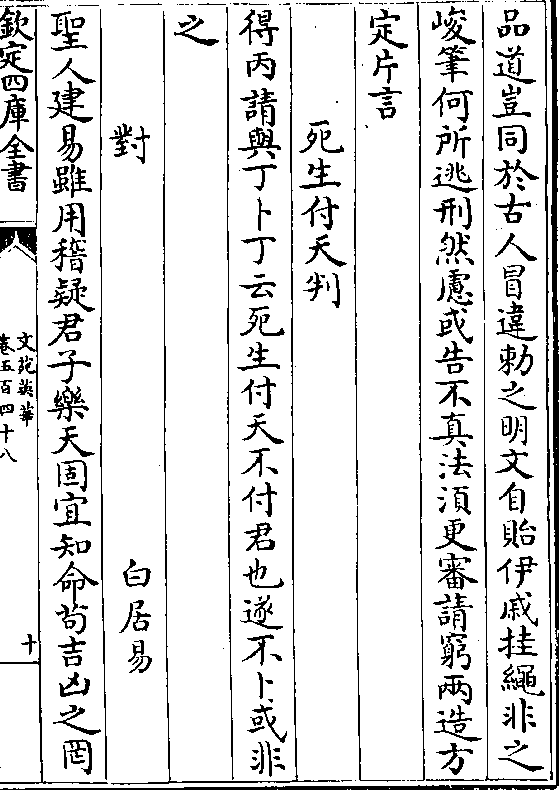 品道豈同於古人冒違勅之明文自貽伊戚挂繩非之
峻筆何所逃刑然慮或告不真法須更審請窮兩造方
定片言
死生付天判
得丙請與丁卜丁云死生付天不付君也遂不卜或非
之
對
白居易
聖人建易雖用稽疑君子樂天固宜知命茍吉凶之罔
欽定四庫全書
文苑英華
卷五百四十八
十